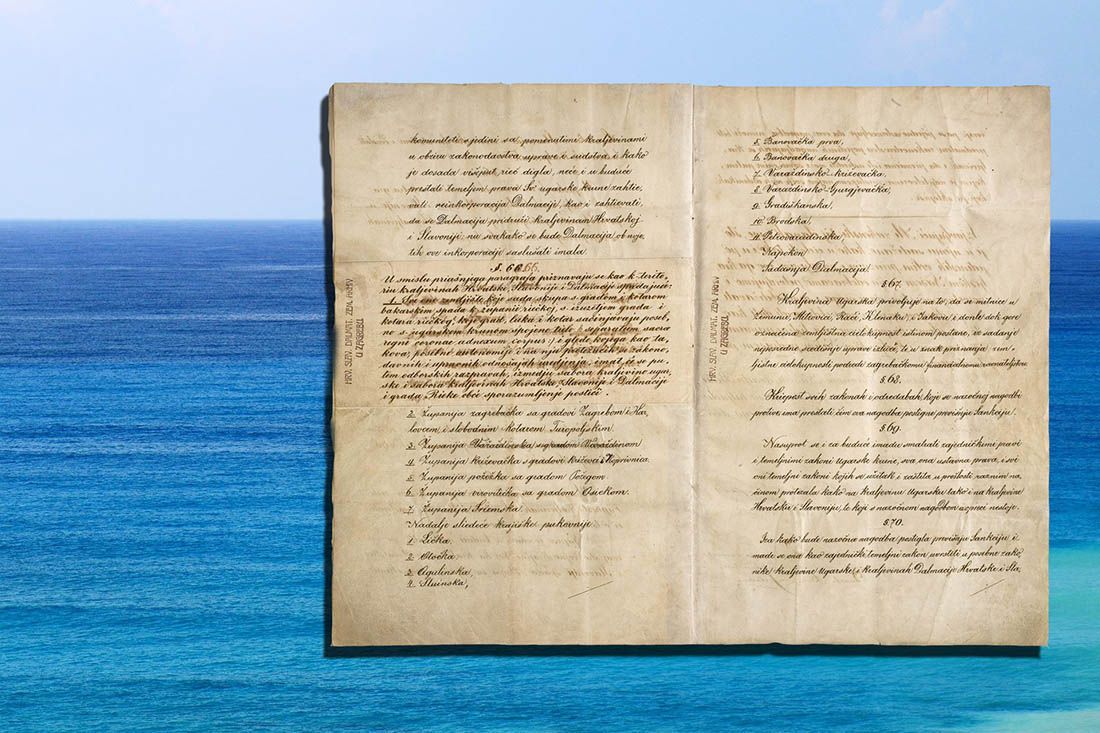 komuniteti sjedini sa pomenutimi kraljevinami
u obziru zakonodavstva uprave i sudstva, i kako
je dosada višeput rieč digla, neće i u buduće
prestati temeljem prava Sv ugarske krune zahtie,
vati reinkorporacija Dalmacije, kao i zahtievati,
da se Dalmacija pridruži kraljevinam Hrvatskoj
i Slavoniji; nu svakako se bude Dalmacija ob uvje,
tih ove inkorporacije saslušati imala.
66.
U smislu priašnjega paragrafa priznavaju se kao k terito,
riu kraljevinah Hrvatske, Slavonije i Dalmacije spadajuće:
1. Sve ono zemljište koje sada skupa s gradom i kotarom
bakarskim spada k županii riečkoj, s izuzetjem grada i
kotara riečkog, koji grad, luka i kotar sačinjavaju poseb,
no s ugarskom krunom spojeno tielo (separatum sacrae
regni coronae adnexum corpus) i glede kojega kao ta,
kova, posebne autonomije i na nju protežućih se zakono,
davnih i upravnih odnošajah uredjenja, imat će se pu,
tem odborskih razpravah, izmedju sabora kraljevine ugar,
ske i sabora kraljevinah Hrvatske, Slavonije i Dalmacije
i grada Rieke obći sporazumljenje postići.
HRV. SLAV. DALMAT. ZEM. ARKIV
U ZAGREBU.
2. Županija zagrebačka sa gradovi Zagrebom i Kar,
lovcem i slobodnim kotarom Turopoljskim.
3. Županija Varaždinska s gradom Varaždinom
4. Županija križevačka s gradovi križevci i Koprivnica.
5. Županija požežka sa gradom Požegom
6. Županija virovitička sa gradom Osiekom.
7. Županija Sriemska.
Nadalje sliedeće krajiške pukovnije
1. Lička,
2. Otočka
3. Ogulinska,
4. Sluinska,
5. Banovačka prva,
6. Banovačka druga,
7. Varaždinsko križevačka,
8. Varaždinsko Gjurgjevačka,
9. Gradiškanska,
10. Brodska,
11. Petrovaradinska,
Napokon
Sadašnja Dalmacija.
HRV. SLAV. DALMAT. ZEM. ARKIV
U ZAGREBU.
§ 67.
Kraljevina Ugarska privoljuje na to, da se mitnice u
Zemunu, Mitrovici, Rači, Klenaku i Jakovu i donle dok gore
označena zemljištna cielokupnost istinom postane, ve sadanje
neposredno središnje uprave izluči, te u znak priznanja zem,
ljištne cielokupnosti podredi zagrebačkomu financialnomu ravnateljstvu.
§. 68.
Kriepost svih zakonah i odredabah, koje se nazočnoj nagodbi
protive, ima prestati čim ova nagodba postigne previšnju Sankciju.
§ 69.
Nasuprot se i za buduće imadu smatrati zajedničkimi pravi
i temeljnimi zakoni Ugarske krune, sva ona ustavna prava, i svi
oni temeljni zakoni kojih se učitak i zaštita u prošlosti raznim na,
činom protezala kako na kraljevinu Ugarsku tako i na kraljevine
Hrvatsku i Slavoniju, te koji s nazočnom nagodbom uzprieci nestoje.
§ 70.
Iza kako bude nazočna nagodba postigla previšnju Sankciju i,
made se ona kao zajednički temeljni zakon uvrstiti u posebne zako,
nike kraljevine Ugarske, i kraljevinah Dalmacije Hrvatske i Sla,